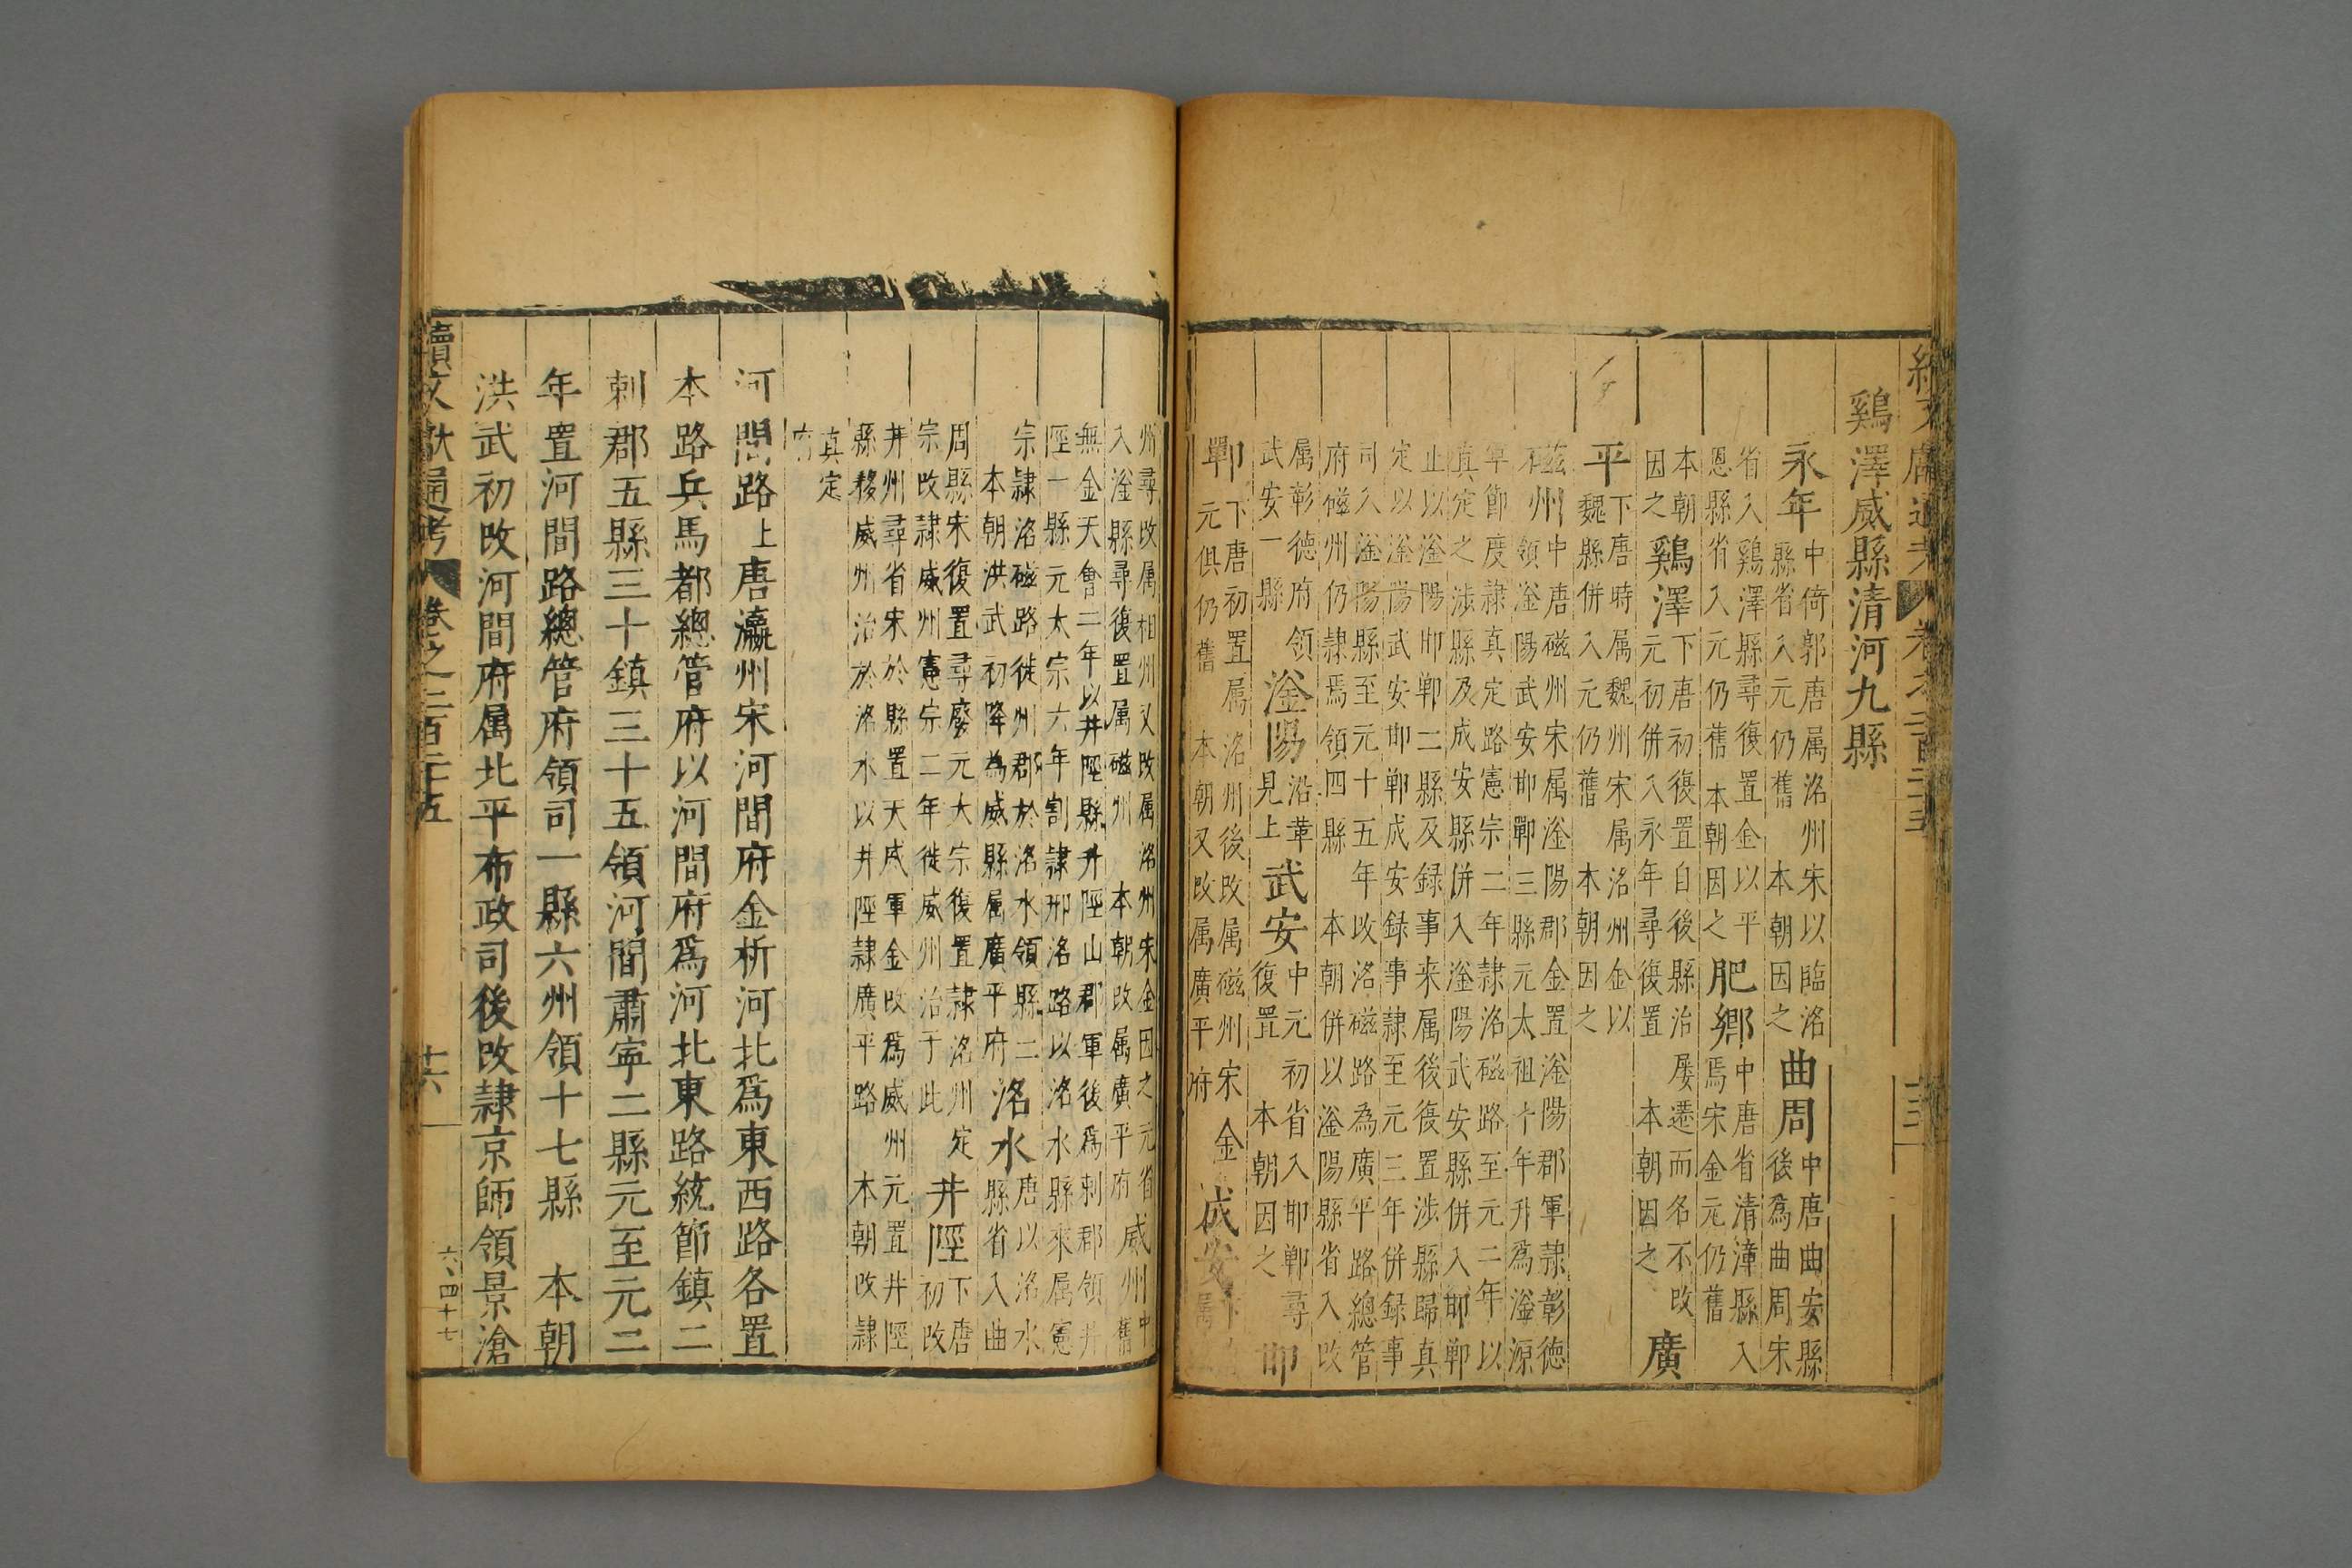 鷄澤威縣清河九縣
永年中倚郭唐属洺州宋以臨洺
縣省入元仍舊 本朝因之曲周中唐曲安縣
後為曲周宋
省入鷄澤縣尋復置金以平
恩縣省入元仍舊 本朝因之肥鄉中唐省清漳縣入
焉宋金元仍舊
本朝因之鷄澤下唐初復置自後縣治屡遷而名不改
元初併入永年尋復置 本朝因之廣
平下唐時属魏州宋属洺州金以
魏縣併入元仍舊 本朝因之
磁州中唐磁州宋属滏陽郡金置滏陽郡軍隷彰德
領滏陽武安邯鄲三縣元太祖十年升為滏源
軍節度隷真定路憲宗二年隷洺磁路至元二年以
真定之涉縣及成安縣併入滏陽武安縣併入邯鄲
止以滏陽邯鄲二縣及録事来属後復置涉縣歸真
定以滏陽武安邯鄲成安録事隷至元三年併録事
司入滏陽縣至元十五年改洺磁路為廣平路總管
府磁州仍隷焉領四縣 本朝併以滏陽縣省入改
属彰德府領
武安一縣滏陽沿革
見上武安中元初省入邯鄲尋
復置 本朝因之邯
鄲下唐初置属洺州後改属磁州宋金
元俱仍舊 本朝又改属廣平府成安
州尋改属相州又改属洺州宋金因之元省
入滏縣尋復置属磁州 本朝改属廣平府威州中
舊
無金天會二年以井陘縣升陘山郡軍後爲刺郡領井
陘一縣元太宗六年割隷邢洺路以洺水縣來属憲
宗隷洺磁路徙州郡於洺水領縣二
本朝洪武初降為威縣属廣平府洺水唐以洺水
縣省入曲
周縣宋復置尋廢元大宗復置隷洺州定
宗改隷威州憲宗二年徙威州治于此井陘下唐
初改
井州尋省宋於縣置天威軍金改爲威州元置井陘
縣移威州治於洺水以井陘隷廣平路 本朝改隷
真定
府
河間路上唐瀛州宋河間府金析河北爲東西路各置
本路兵馬都總管府以河間府爲河北東路統節鎮二
刺郡五縣三十鎮三十五領河間肅寜二縣元至元二
年置河間路總管府領司一縣六州領十七縣 本朝
洪武初改河間府属北平布政司後改隷京師領景滄
續文献通考 卷之二百二十五 十六 六、四十七